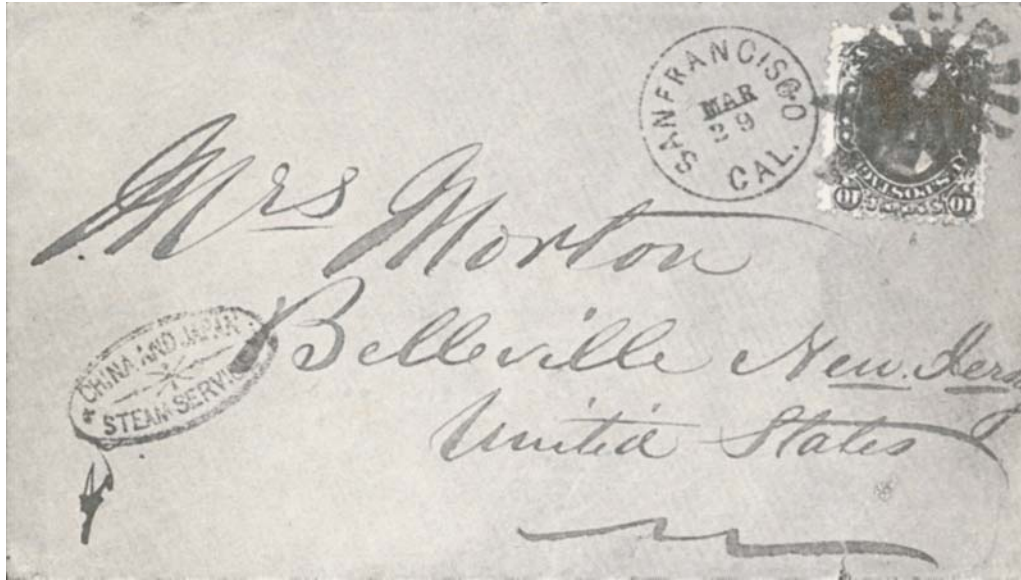 SAN FRANCISCO
MAR
29
CAL.
U.S. POSTAGE
10 10
Mrs Morton
Belleville New Jersy
United States
CHINA AND JAPAN
STEAM SERVICE